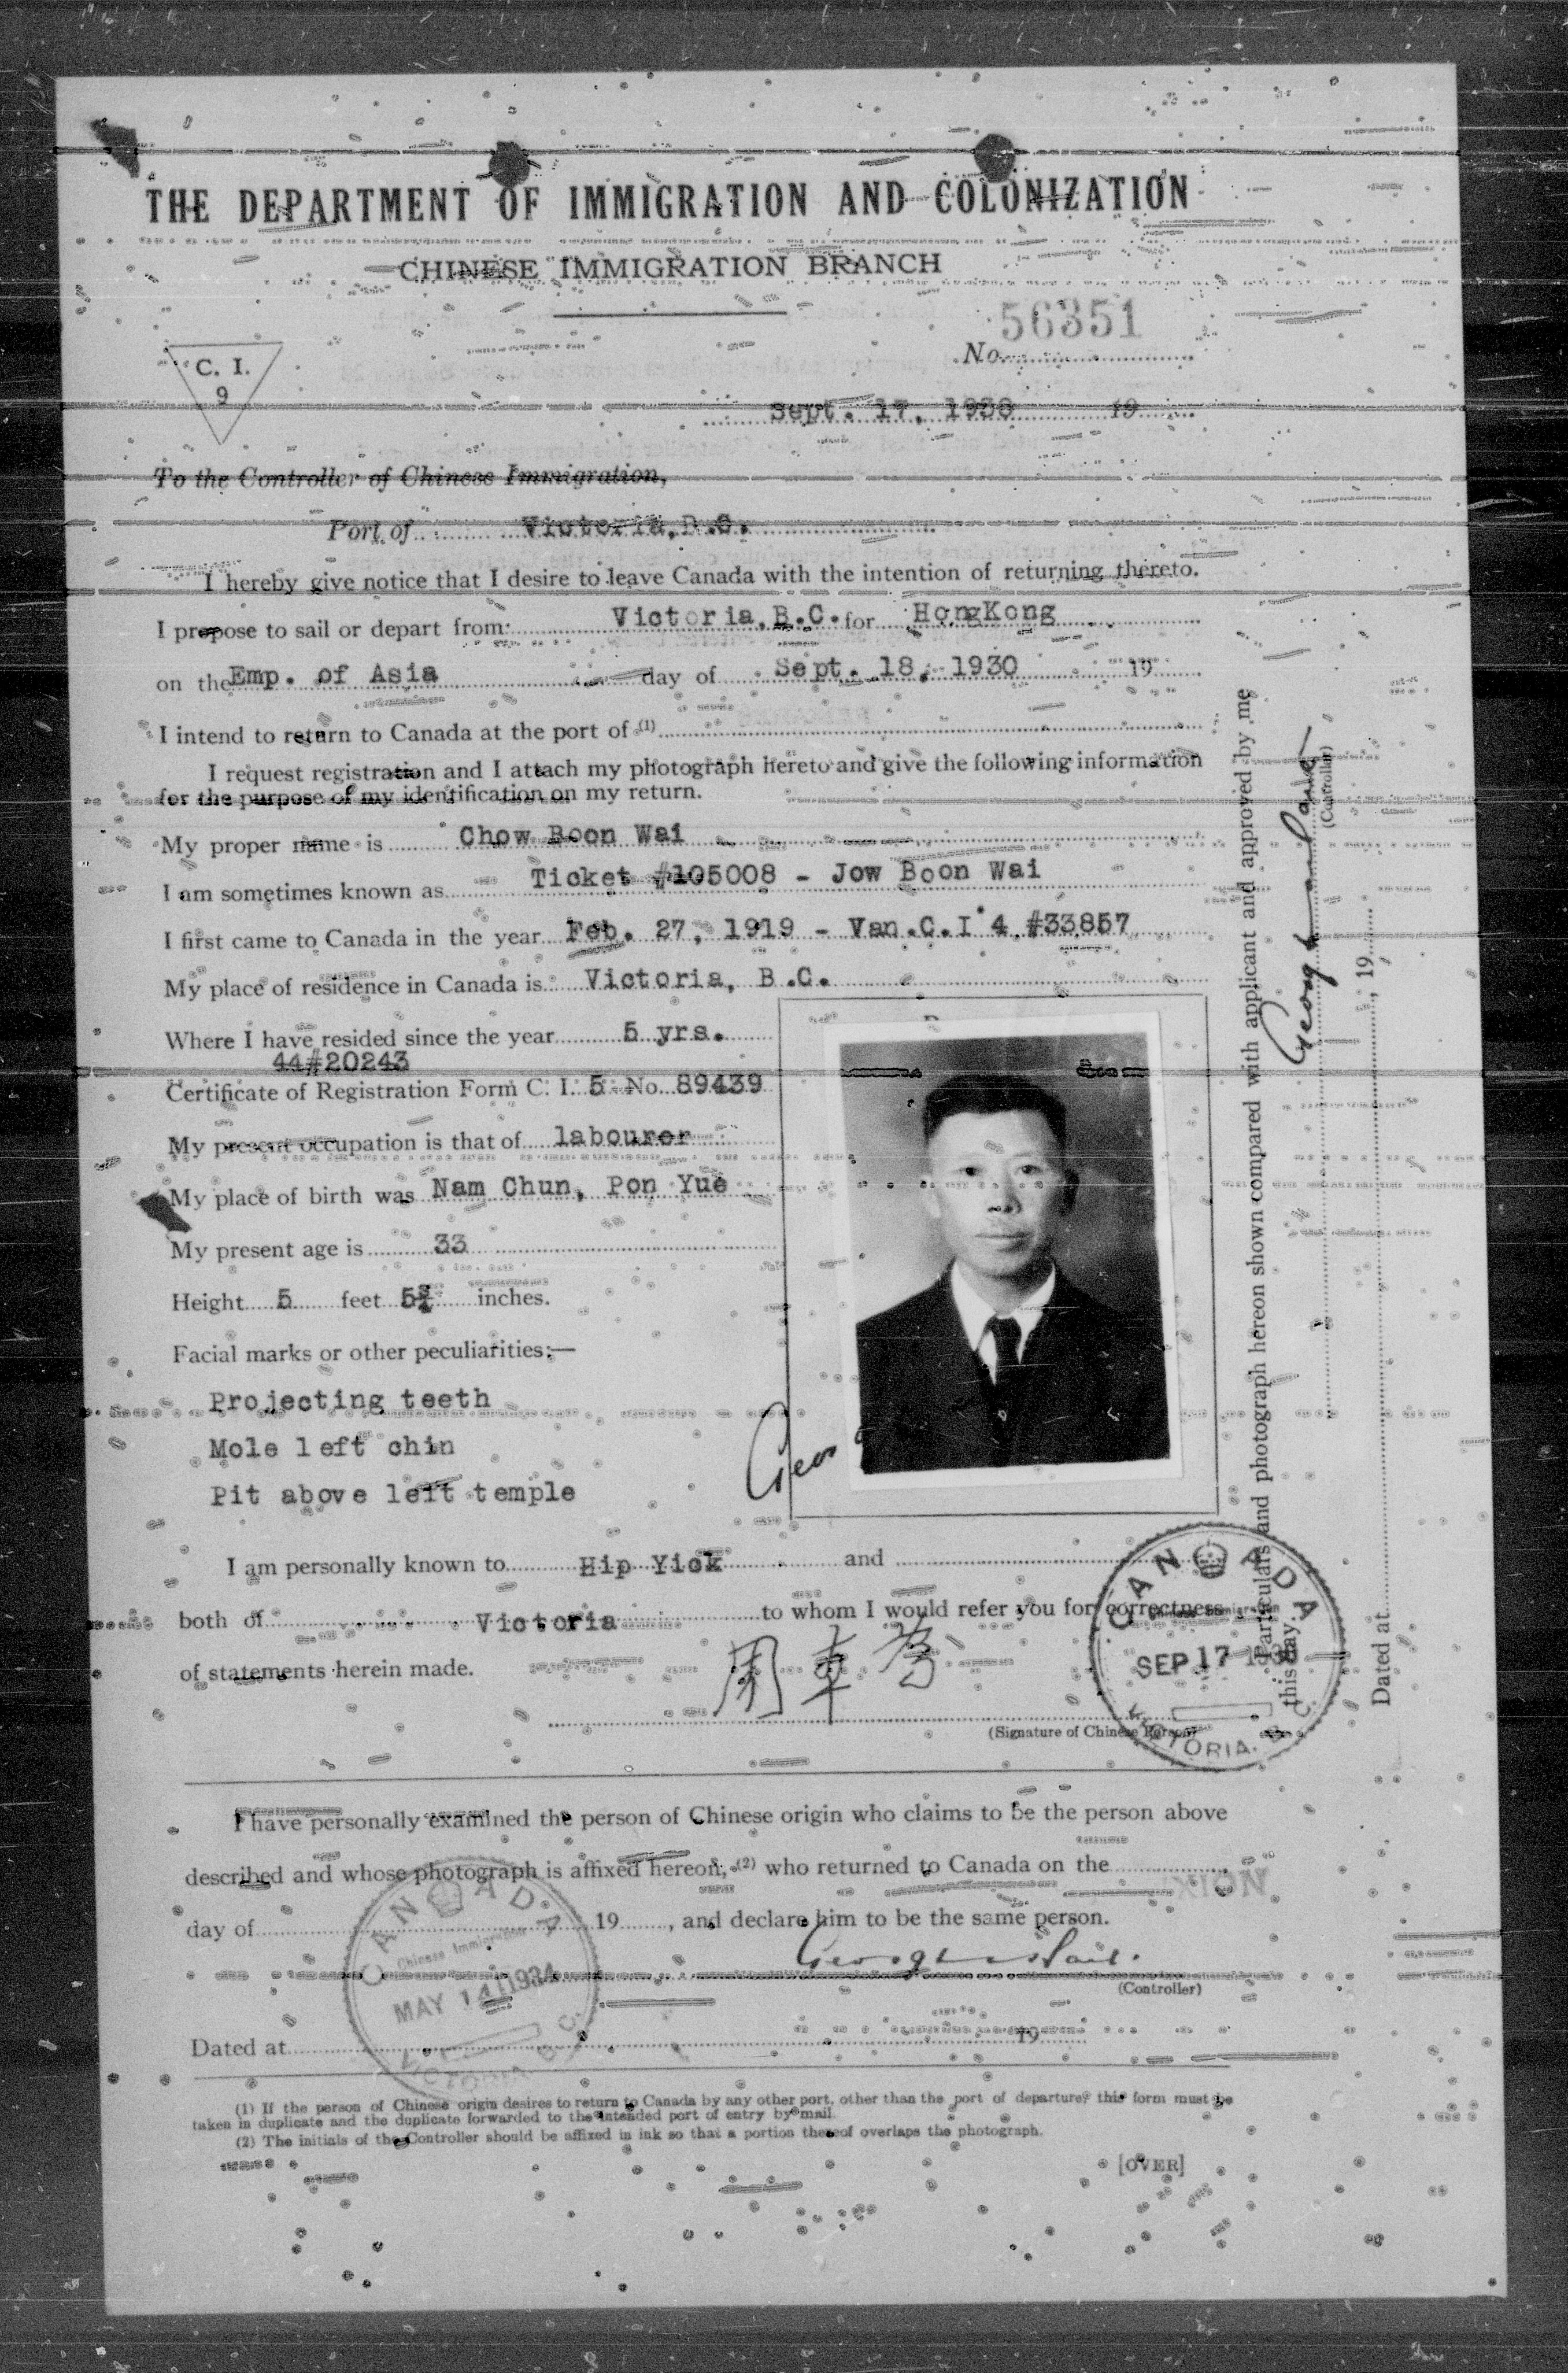 THE DEPARTMENT OF IMMIGRATION AND COLONIZATION
CHINESE IMMIGRATION BRANCH
56351
No.
C. I.
9
Sept. 17, 1930 19
To the Controller of Chinese Immigration,
Port of Victoria, B.C.
I hereby give notice that I desire to leave Canada with the intention of returning thereto.
I propose to sail or depart from: Victoria, B.C. for HongKong
on the Emp. of Asia day of Sept. 18, 1930 19
I intend to return to Canada at the port of (1)
I request registration and I attach my photograph hereto and give the following information
for the purpose of my identification on my return.
My proper name is Chow Boon Wai
I am sometimes known as Ticket #105008 - Jow Boon Wai
I first came to Canada in the year Feb. 27, 1919 - Van.C.I 4 #33857
My place of residence in Canada is Victoria, B.C.
Where I have resided since the year 5 yrs.
44#20243
Certificate of Registration Form C. I. 5 No. 89439
My present occupation is that of labourer
My place of birth was Nam Chun, Pon Yue
My present age is 33
Height 5 feet 5¾ inches.
Facial marks or other peculiarities:—
Projecting teeth
Mole left chin
Pit above left temple
Geor
I am personally known to Hip Yick and
both of Victoria to whom I would refer you for correctness
of statements herein made.
周
(Signature of Chinese Person)
CANADA
Chinese Immigration
SEP 17 1930
VICTORIA B.C.
Particulars and photograph hereon shown compared with applicant and approved by me
this day.
(Controller)
Dated at , 19
I have personally examined the person of Chinese origin who claims to be the person above
described and whose photograph is affixed hereon, (2) who returned to Canada on the
day of 19 , and declare him to be the same person.
(Controller)
CANADA
Chinese Immigration
MAY 14 1934
VICTORIA B.C.
Dated at 19
(1) If the person of Chinese origin desires to return to Canada by any other port, other than the port of departure, this form must be
taken in duplicate and the duplicate forwarded to the intended port of entry by mail.
(2) The initials of the Controller should be affixed in ink so that a portion thereof overlaps the photograph.
[OVER]